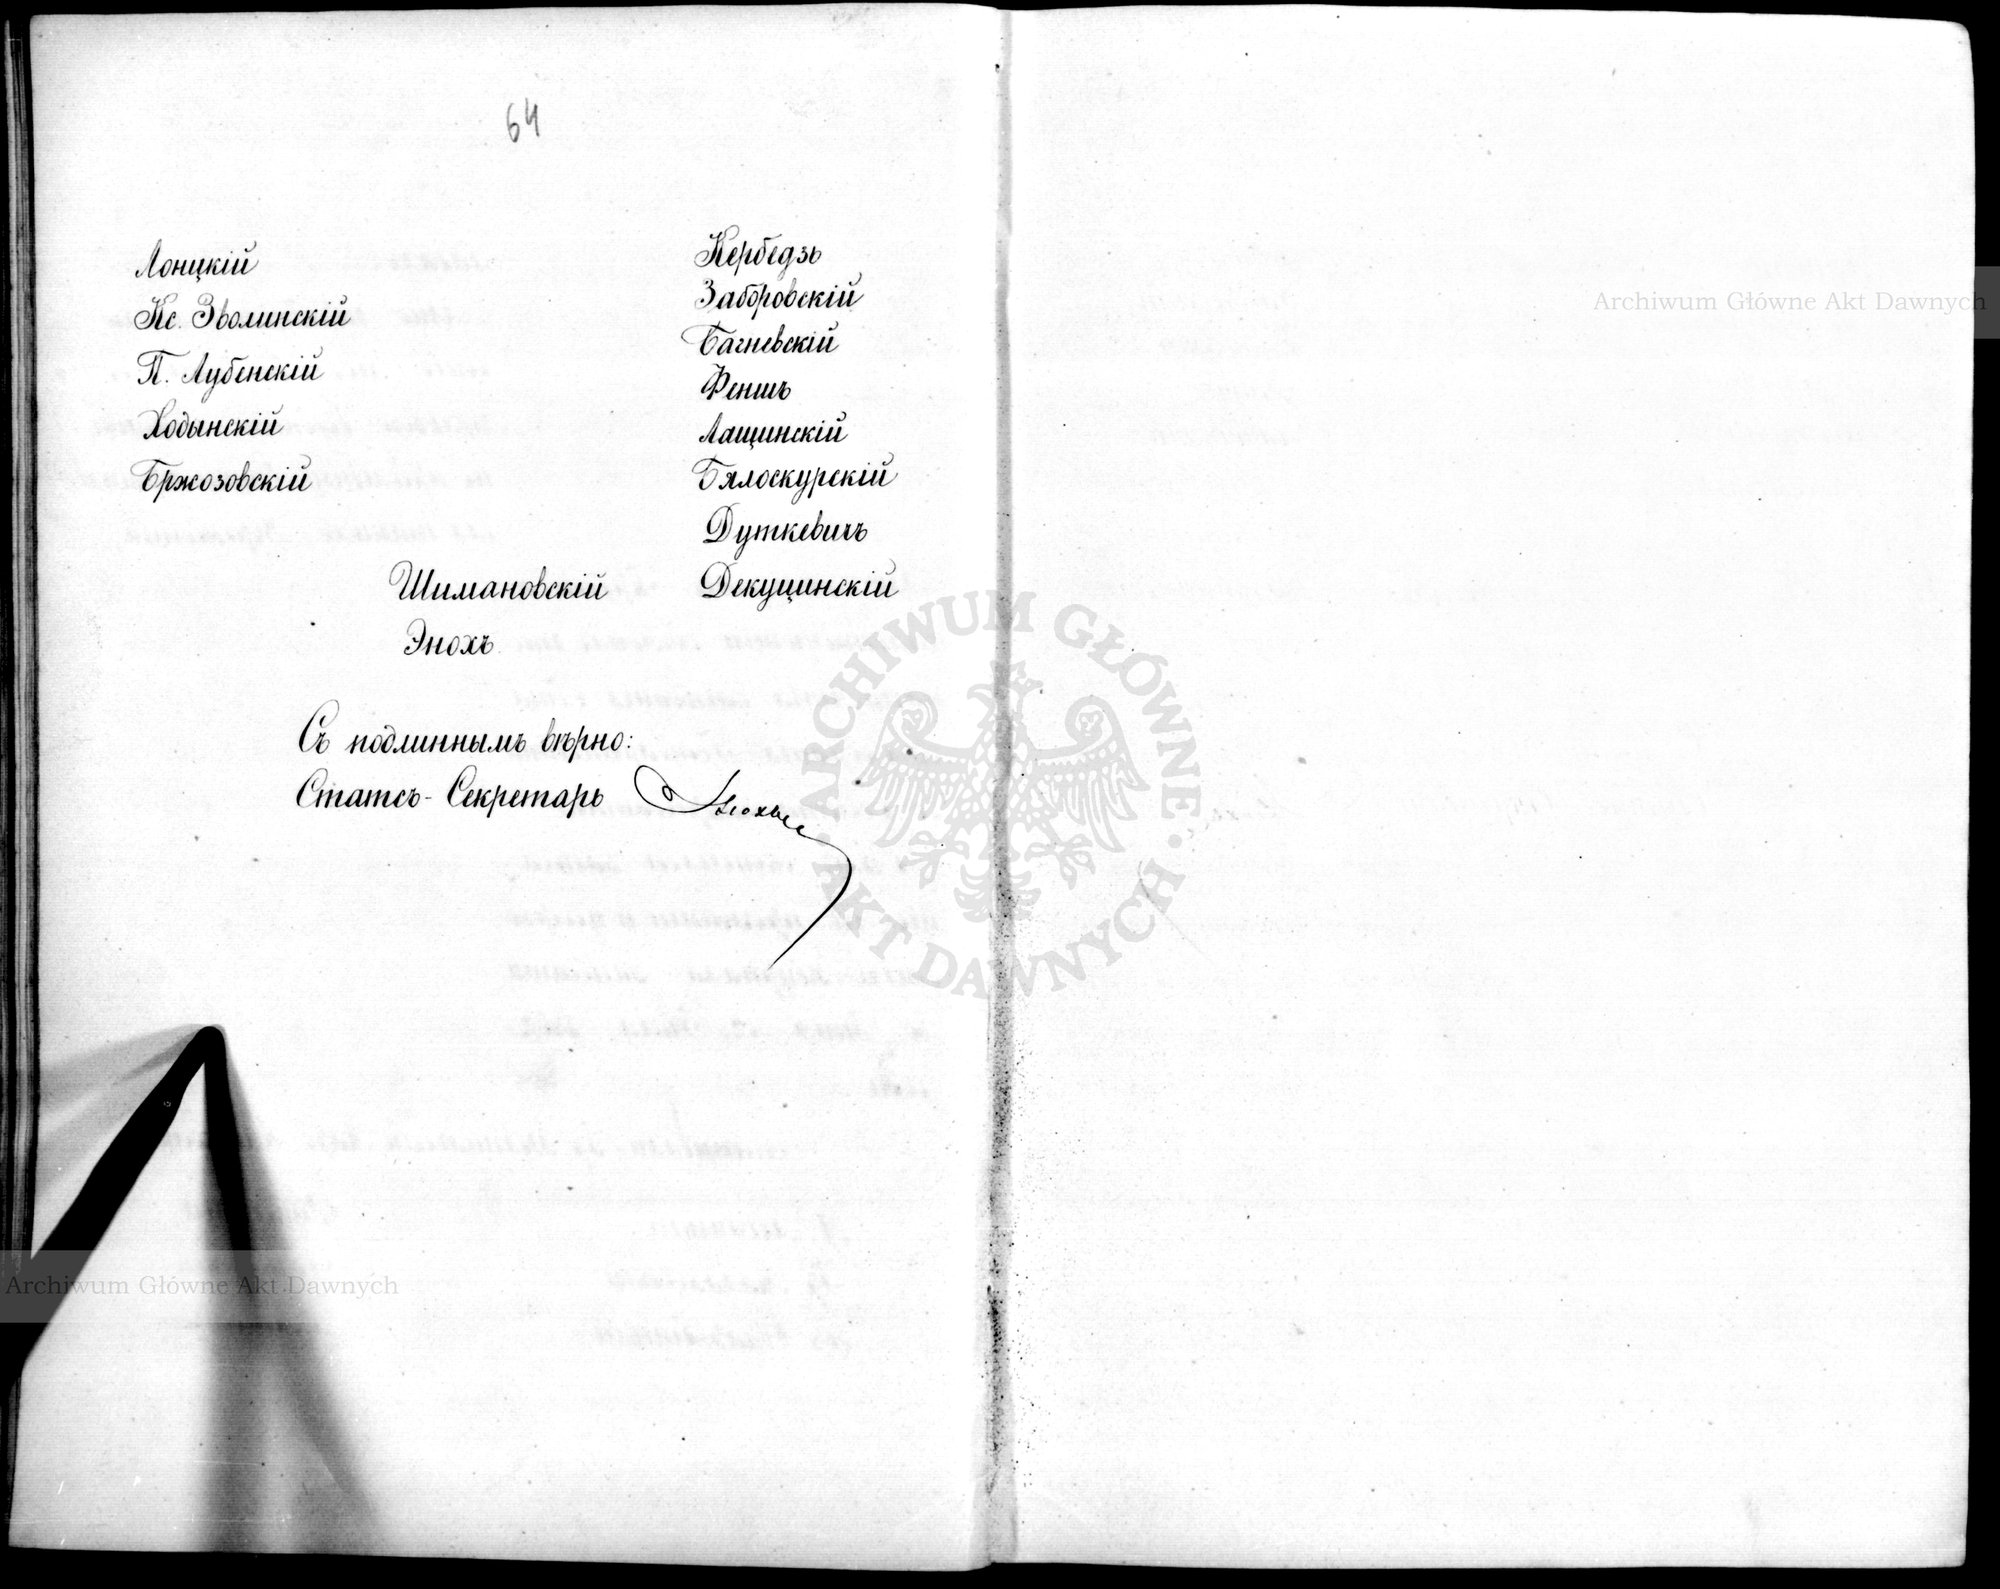 64
Лонцкій
Кс. Зволинскій
П. Лубенскій
Ходынскій
Бржозовскій
Кербедзь
Заборовскій
Багневскій
Феншъ
Лащинскій
Бялоскурскій
Дуткевичъ
Декуцинскій
Шимановскій
Энохъ
Съ подлиннымъ вѣрно:
Статсъ-Секретарь
Archiwum Główne Akt Dawnych
ARCHIWUM GŁÓWNE AKT DAWNYCH
Archiwum Główne Akt Dawnych